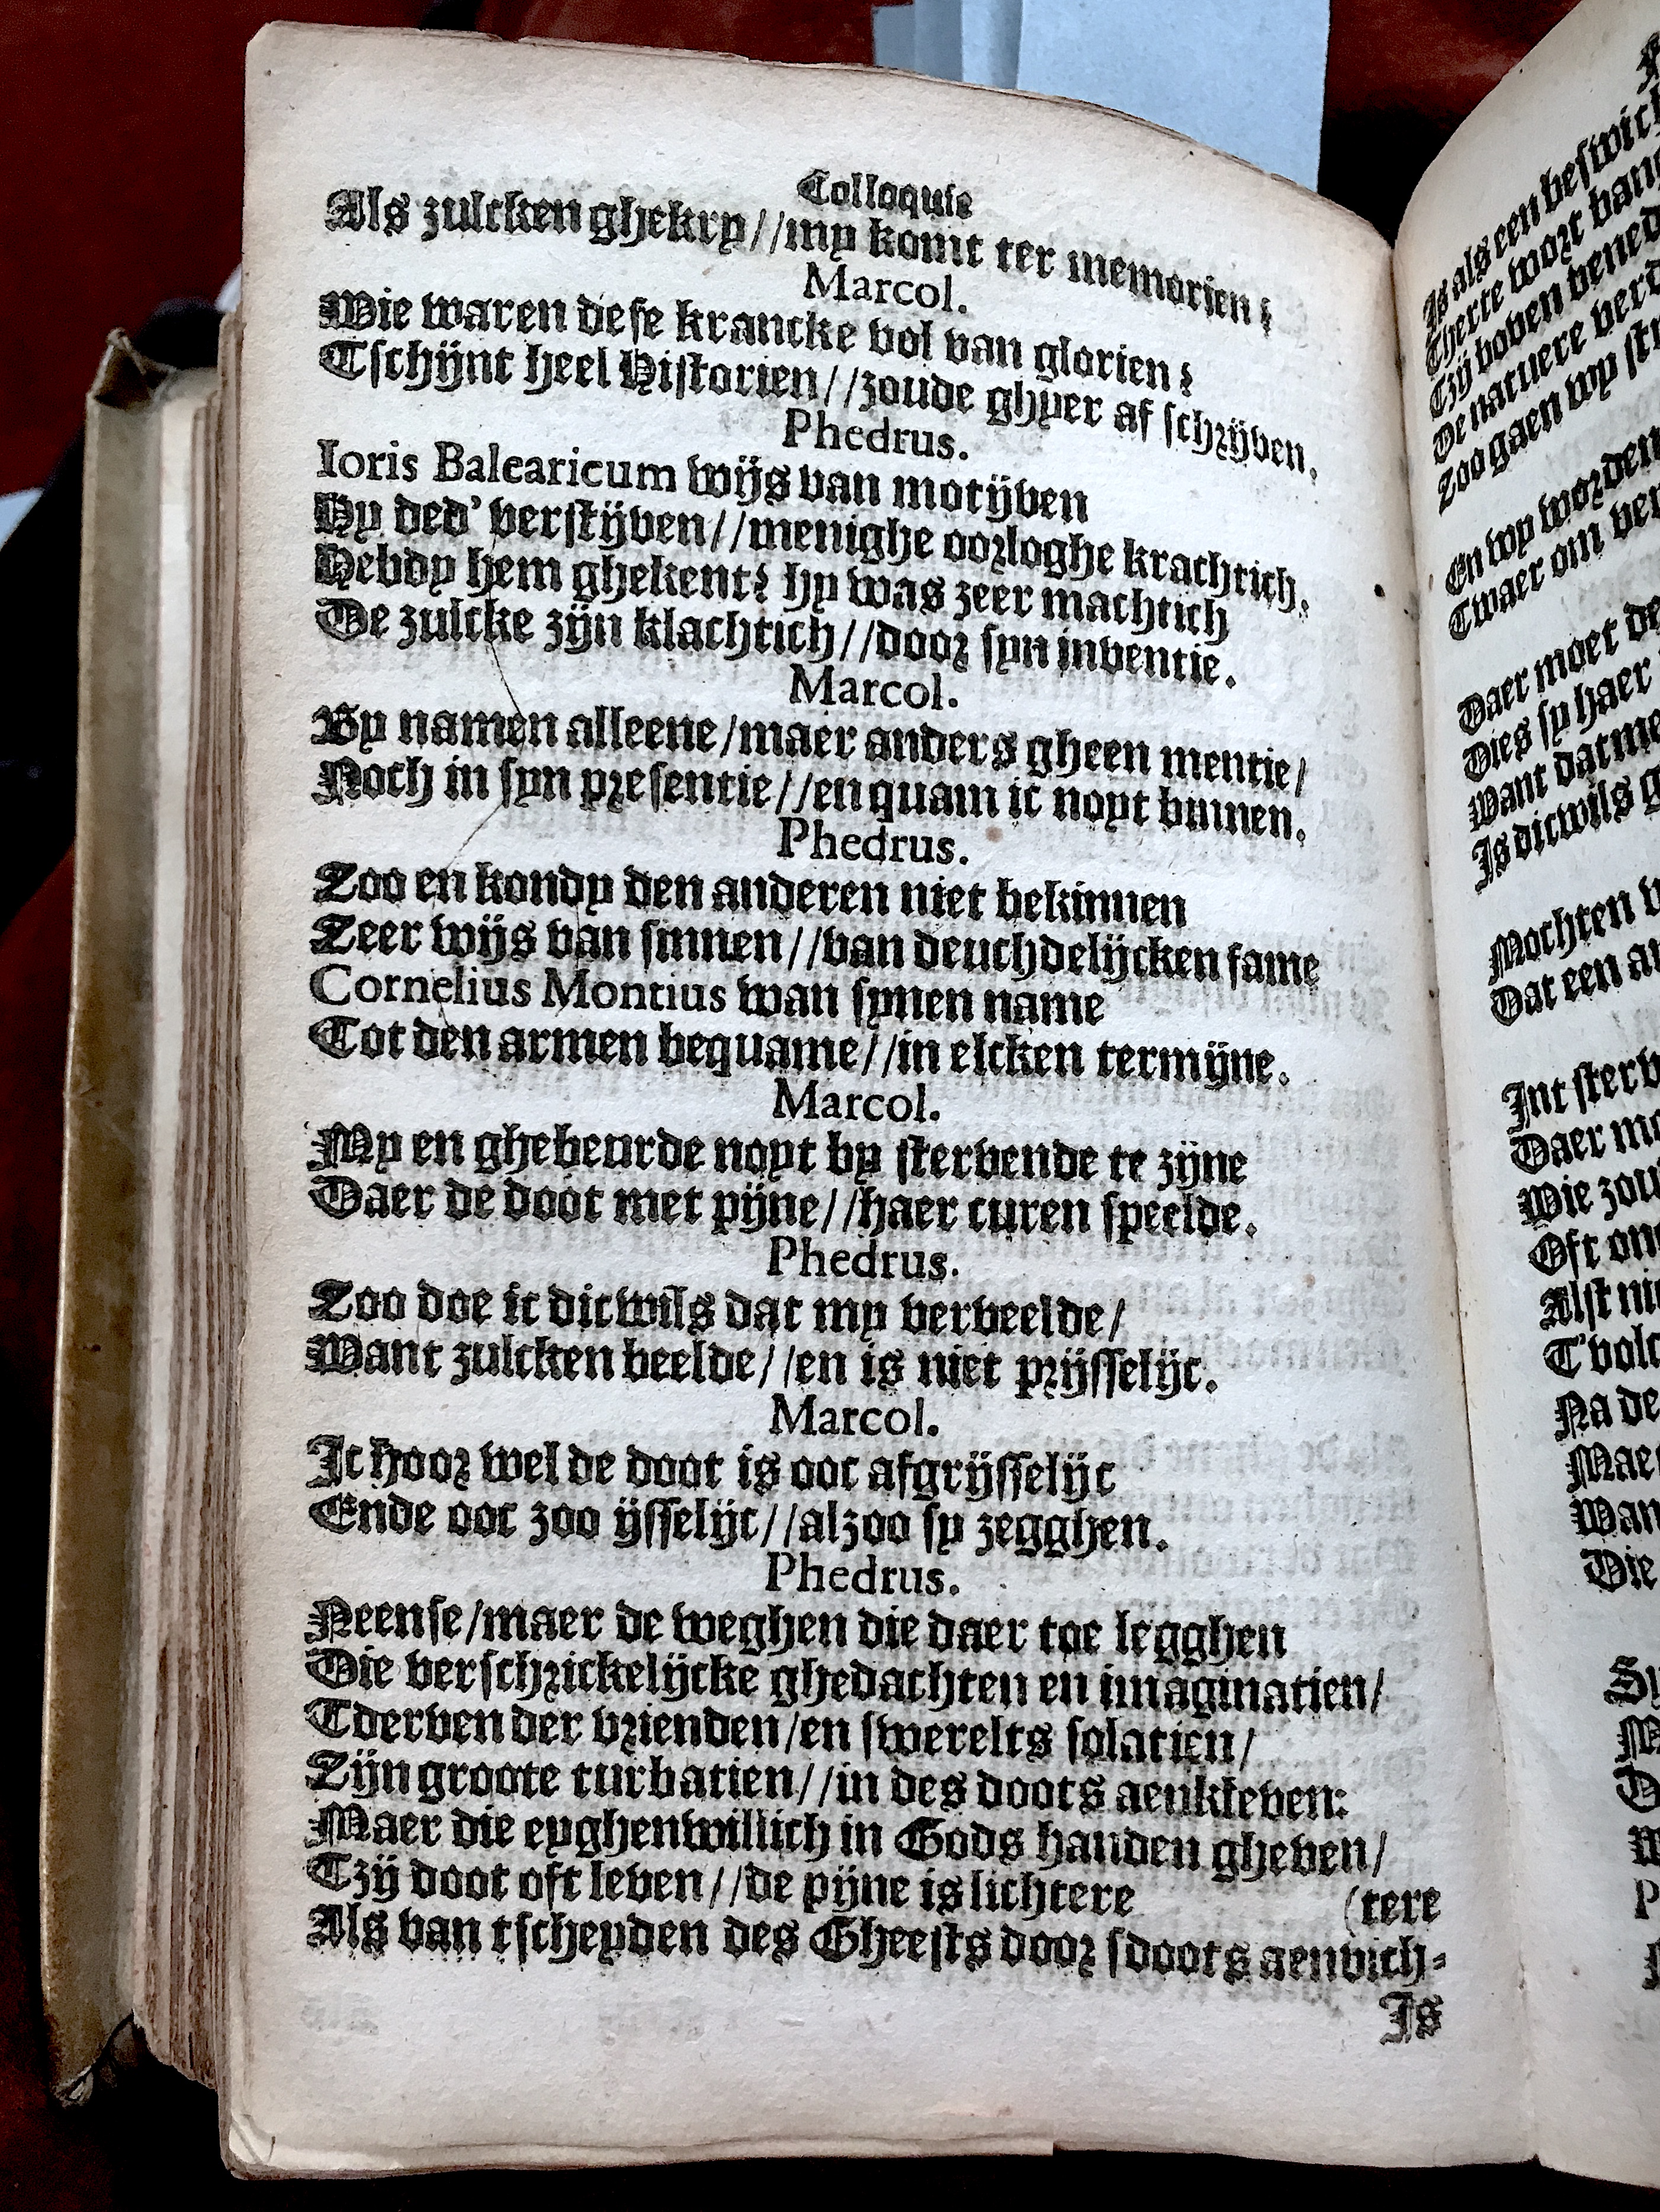 Colloquie
Als zulcken ghekry//my komt ter memorien?
Marcol.
Wie waren dese krancke vol van glorien?
Tschijnt heel Historien//zoude ghyer af schrijven.
Phedrus.
Ioris Balearicum wijs van motijven
Hy ded' verstijven//menighe oorloghe krachtich,
Hebdy hem ghekent? hy was zeer machtich
De zulcke zijn klachtich//door syn inventie.
Marcol.
By namen alleene/maer anders gheen mentie/
Noch in syn presentie//en quam ic noyt binnen.
Phedrus.
Zoo en kondy den anderen niet bekinnen
Zeer wijs van sinnen//van deuchdelijcken fame
Cornelius Montius wan synen name
Tot den armen bequame//in elcken termijne.
Marcol.
My en ghebeurde noyt by stervende te zijne
Daer de doot met pijne//haer curen speelde.
Phedrus.
Zoo doe ic dicwils dat my verveelde/
Want zulcken beelde//en is niet prijsselijc.
Marcol.
Ic hoor wel de doot is ooc afgrijsselijc
Ende ooc zoo ijsselijc//alzoo sy zegghen.
Phedrus.
Neense/maer de weghen die daer toe legghen
Die verschrickelijcke ghedachten en imaginatien/
Tderven der vrienden/en swerelts solatien/
Zijn groote turbatien//in des doots aenkleven:
Maer die eyghenwillich in Gods handen gheven/
Tzij doot oft leven//de pijne is lichtere
(tere
Als van tscheyden des Gheests door sdoots aenvich-
Is
Is als een
Therte wort
Tzij boven
De natuere
Zoo gaen wy
En wy worden
Twaer om
Daer moet
Dies sy haer
Want datme
Is dicwils
Mochten
Dat een
Int
Daer
Wie
Oft
Alst
Na de
Die